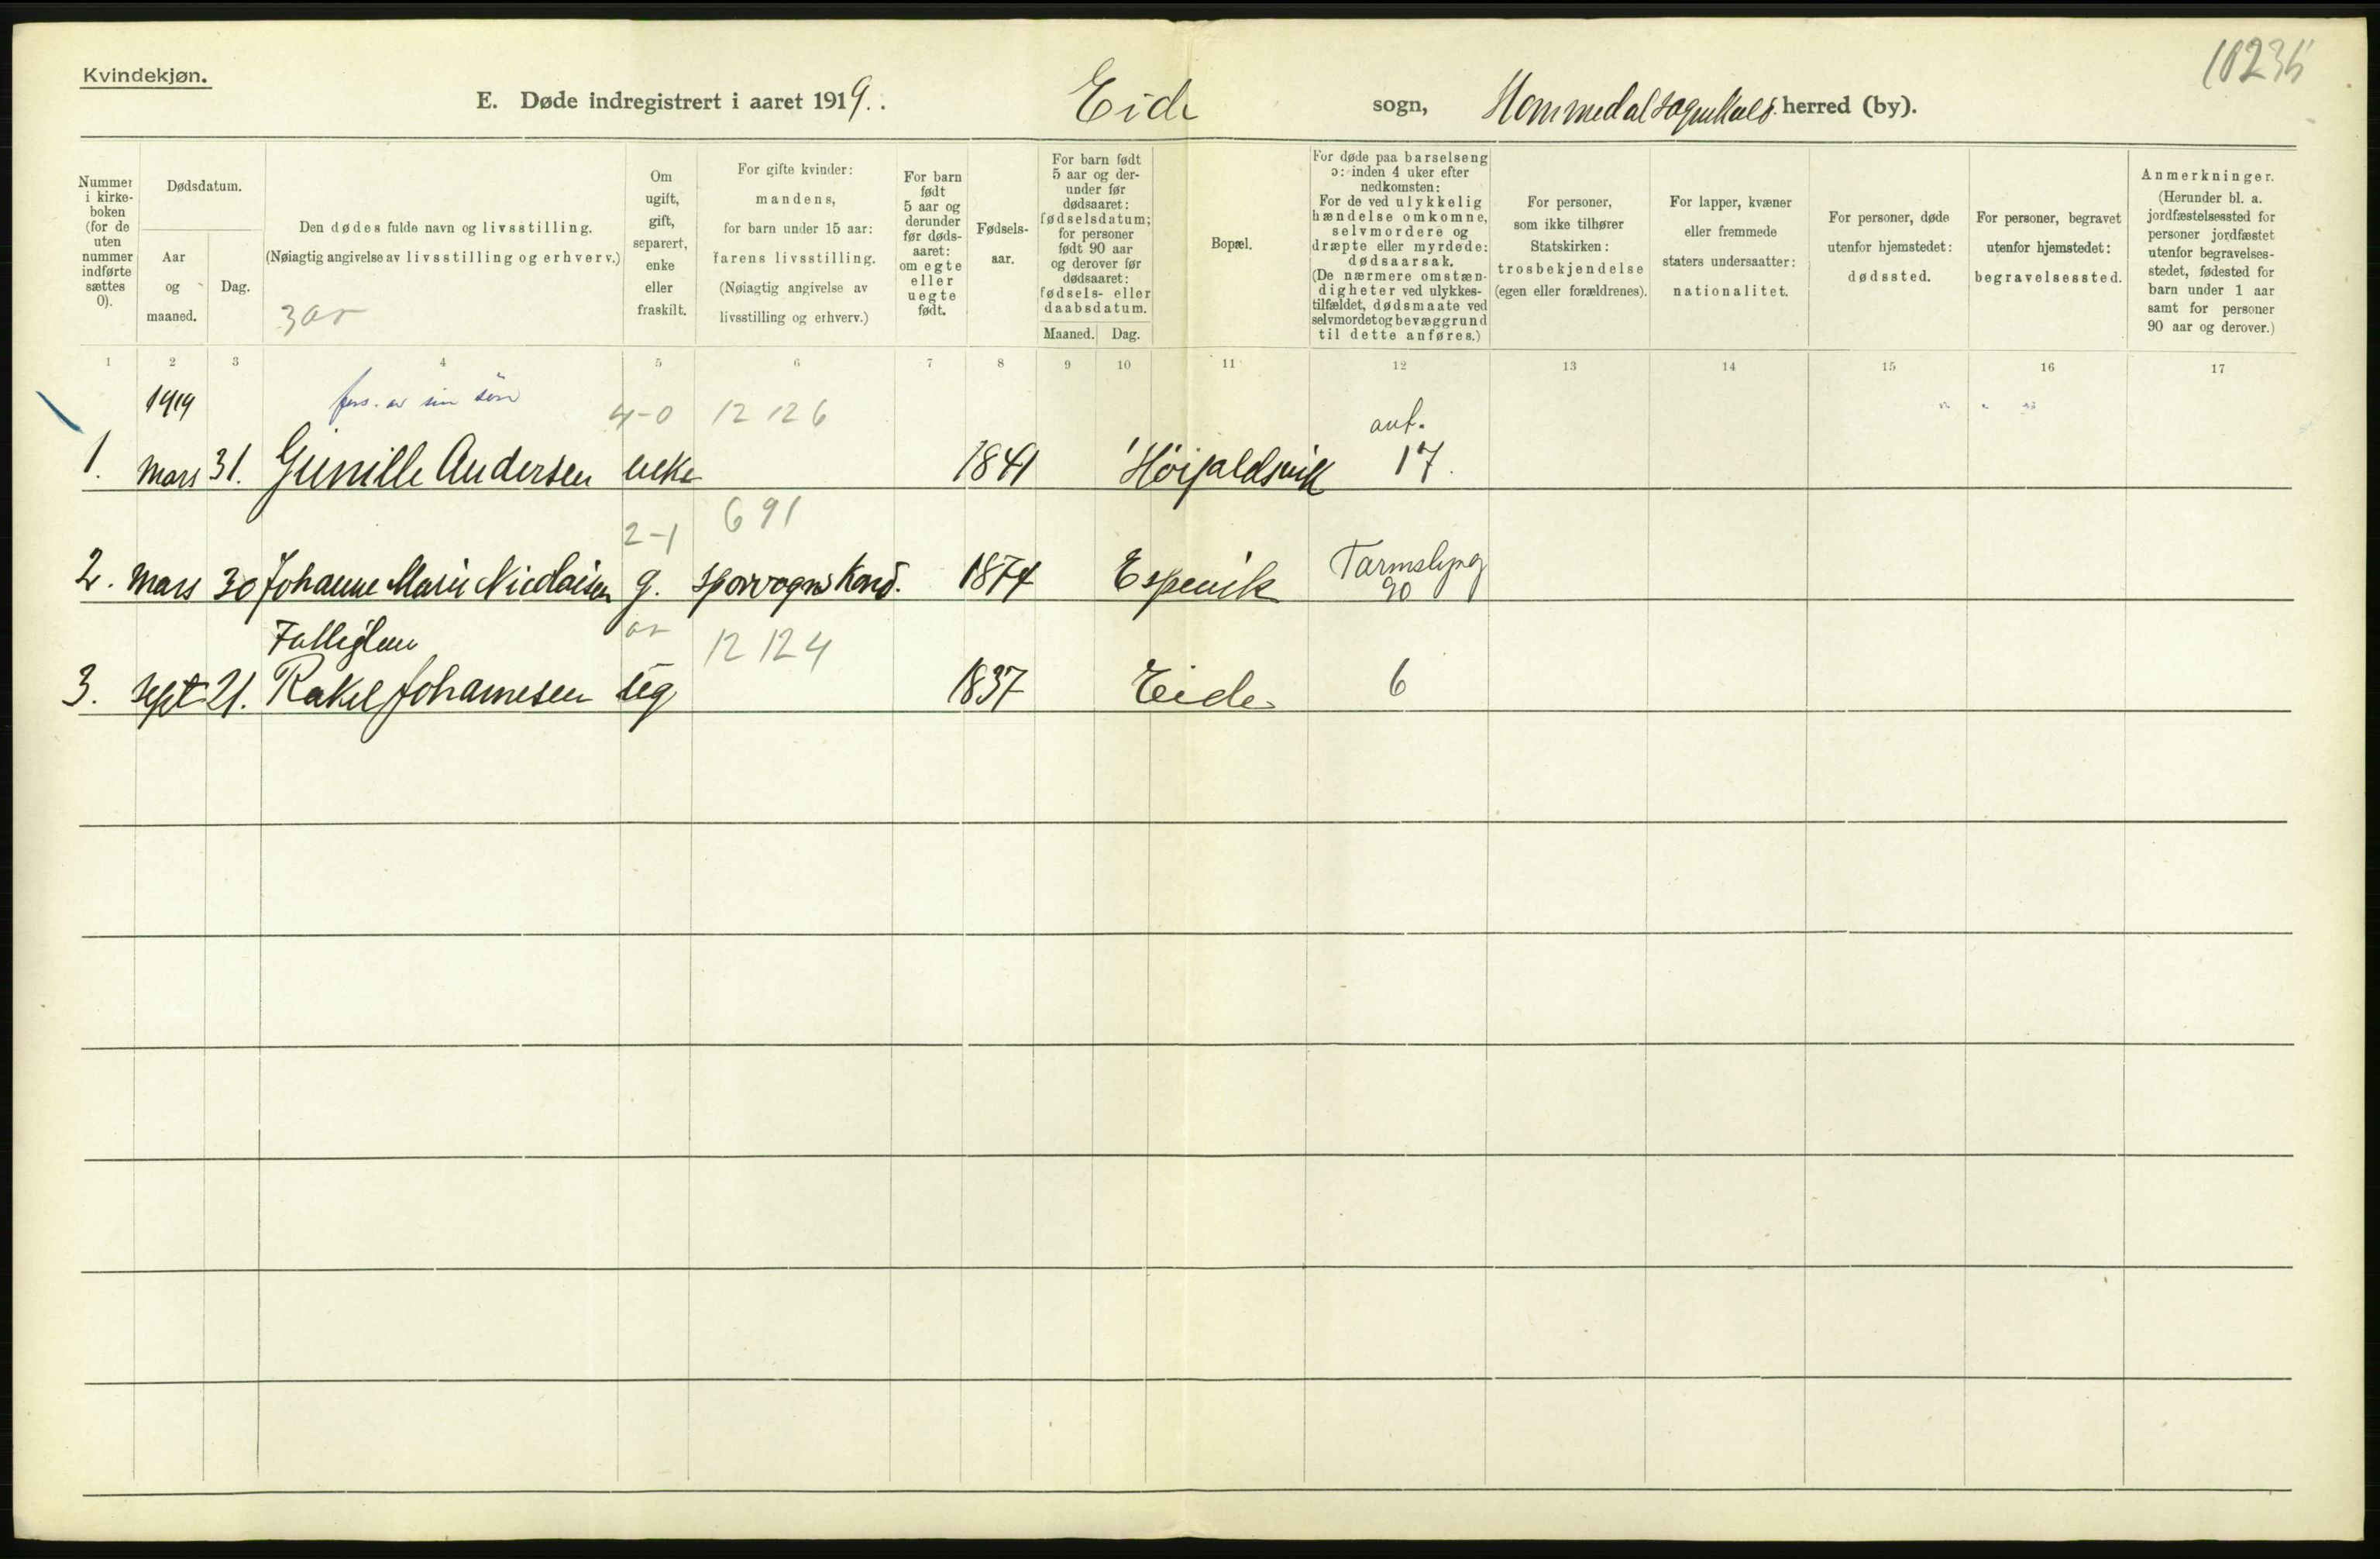 Kvindekjøn.
E. Døde indregistrert i aaret 1919.. Eide sogn, Hommedal sognekald herred (by).
Nummer i kirke-boken (for de uten nummer indførte sættes 0).
Dødsdatum.
Aar og maaned.
Dag.
Den dødes fulde navn og livsstilling.
(Nøiagtig angivelse av livsstilling og erhverv.)
Om ugift, gift, separert, enke eller fraskilt.
For gifte kvinder:
mandens,
for barn under 15 aar:
farens livsstilling.
(Nøiagtig angivelse av
livsstilling og erhverv.)
For barn født 5 aar og derunder før døds-aaret: om egte eller uegte født.
Fødsels-aar.
For barn født 5 aar og der-under før dødsaaret: fødselsdatum; for personer født 90 aar og derover før dødsaaret: fødsels- eller daabsdatum.
Maaned. Dag.
Bopæl.
For døde paa barselseng
ɔ: inden 4 uker efter
nedkomsten:
For de ved ulykkelig
hændelse omkomne,
selvmordere og
dræpte eller myrdede:
dødsaarsak.
(De nærmere omstæn-
digheter ved ulykkes-
tilfældet, dødsmaate ved
selvmordet og bevæggrund
til dette anføres.)
For personer,
som ikke tilhører
Statskirken:
trosbekjendelse
(egen eller forældrenes).
For lapper, kvæner
eller fremmede
staters undersaatter:
nationalitet.
For personer, døde
utenfor hjemstedet:
dødssted.
For personer, begravet
utenfor hjemstedet:
begravelsessted.
Anmerkninger.
(Herunder bl. a.
jordfæstelsessted for
personer jordfæstet
utenfor begravelses-
stedet, fødested for
barn under 1 aar
samt for personer
90 aar og derover.)
1 2 3 4 5 6 7 8 9 10 11 12 13 14 15 16 17
1919 fors. av sin søn 4-0 12 126
1. Mars 31. Gunille Andersen enke 1841 17.
2-1 691
2. Mars 30 Johanne Marie Nicolaisen g. Sporvogns Kond. 1874 Espevik Tarmslyng 90
12 124
3. Sept. 21. Rakel Johannesen ug 1837 Eide 6